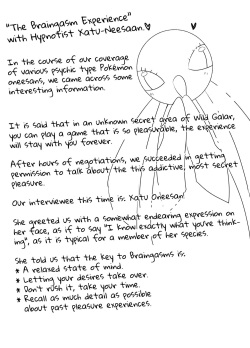 "The Braingasm Experience"
with Hypnotist Xatu-Neesaan ♥
In the course of our coverage
of various psychic type Pokémon
oneesans, we came across some
interesting information.
It is said that in an Unknown secret area of Wild Galar,
you can play a game that is so pleasurable, the experience
will stay with you forever.
After hours of negotiations, we succeeded in getting
permission to talk about the this addictive, most secret
pleasure.
Our interviewee this time is: Xatu Oneesan.
She greeted us with a somewhat endearing expression on
her face, as if to say "I know exactly what you're think-
ing", as it is typical for a member of her species.
She told us that the key to Braingasms is:
* A relaxed state of mind.
* Letting your desires take over.
* Don't rush it, take your time.
* Recall as much detail as possible
about past pleasure experiences.